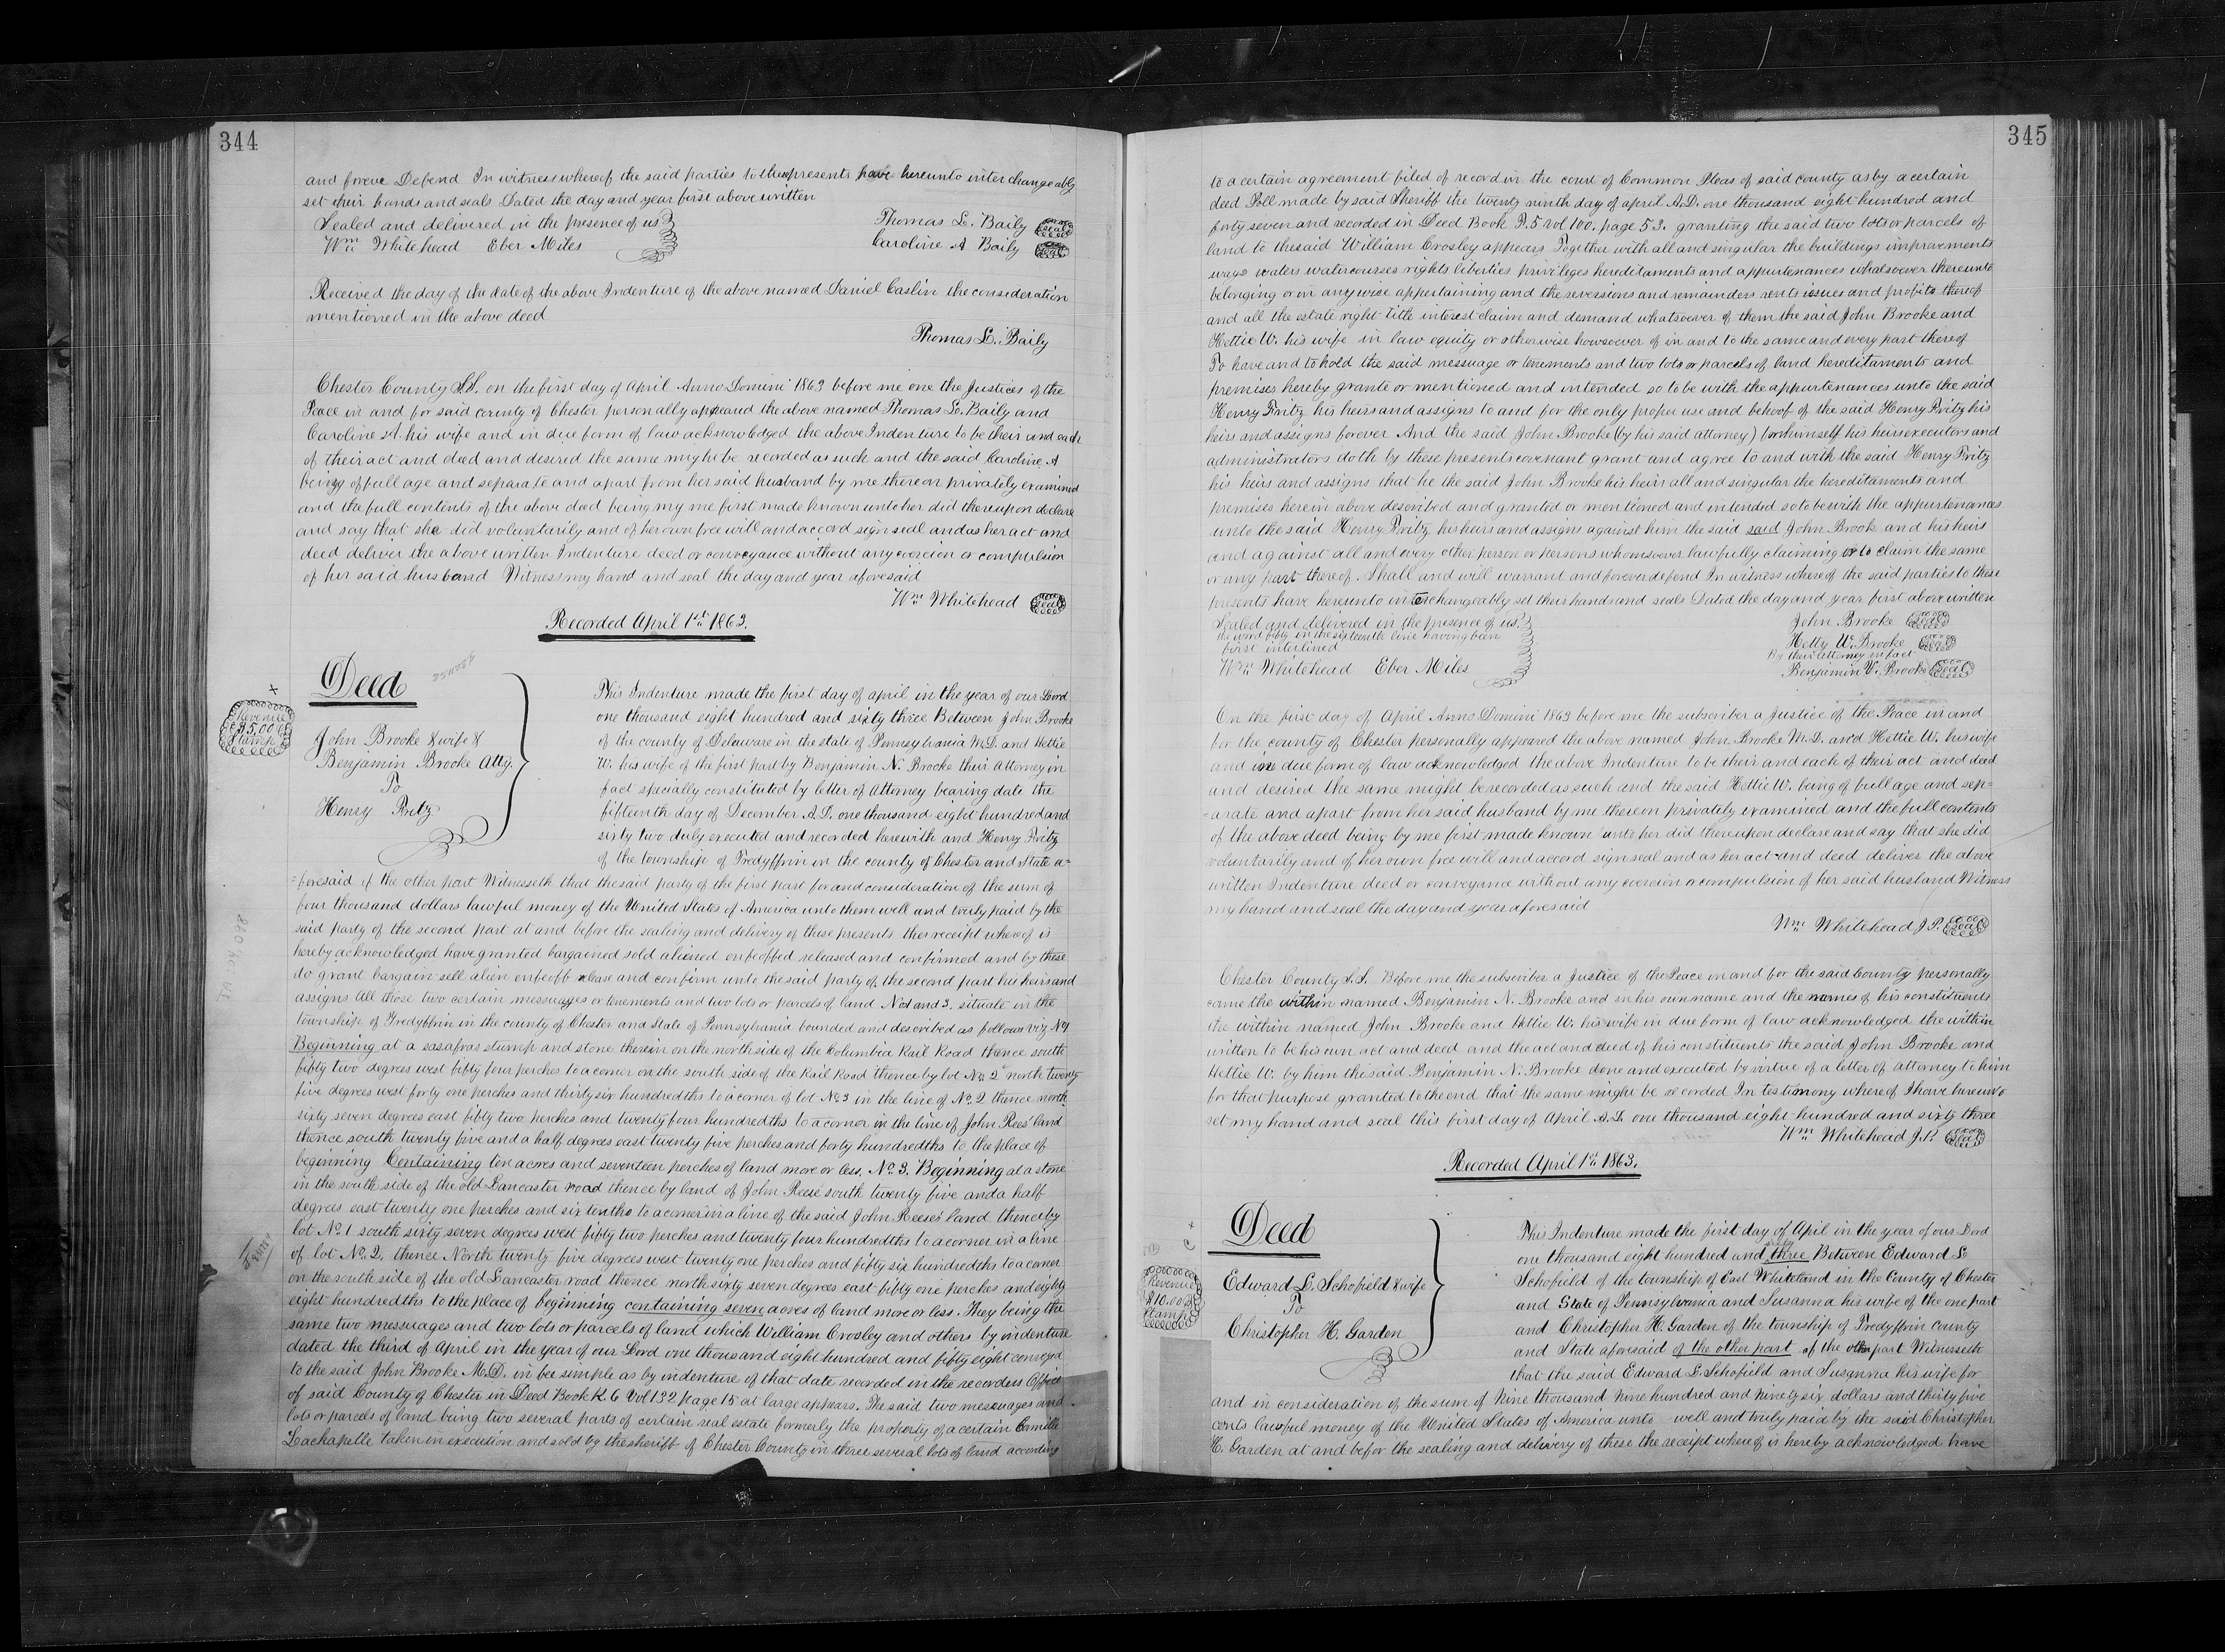 344
and foreve Defend In witness whereof the said parties to these presents have hereunto interchangeably
set their hands and seals Dated the day and year first above written
Sealed and delivered in the presence of us
Wm Whitehead Eber Miles
Thomas L. Baily seal
Caroline A Baily seal
Received the day of the date of the above Indenture of the above named Daniel Caslin the consideration
mentioned in the above deed
Thomas L. Baily
Chester County SS. on the first day of April Anno Domini 1863 before me one the Justices of the
Peace in and for said county of Chester personally appeared the above named Thomas L. Baily and
Caroline A. his wife and in due form of law acknowledged the above Indenture to be their and each
of their act and deed and desired the same might be recorded as such and the said Caroline A
being of full age and separate and apart from her said husband by me thereon privately examined
and the full contents of the above deed being my me first made known unto her did thereupon declare
and say that she did voluntarily and of her own free will and accord sign seal and as her act and
deed deliver the above written Indenture deed or conveyance without any coercion or compulsion
of her said husband Witness my hand and seal the day and year aforesaid
Wm Whitehead seal
Recorded April 1st 1863.
Deed
Revenue
$5.00
Stamp
John Brooke & wife &
Benjamin Brooke Atty.
To
Henry Fritz
This Indenture made the first day of april in the year of our Lord
one thousand eight hundred and sixty three Between John Brooke
of the county of Delaware in the state of Pennsylvania M.D. and Hettie
W. his wife of the first part by Benjamin N. Brooke their Attorney in
fact specially constituted by letter of Attorney bearing date the
fifteenth day of December A.D. one thousand eight hundred and
sixty two duly executed and recorded herewith and Henry Fritz
of the township of Tredyffrin in the county of Chester and State a=
=foresaid of the other part Witnesseth that the said party of the first part for and consideration of the sum of
four thousand dollars lawful money of the United States of America unto them well and truly paid by the
said party of the second part at and before the sealing and delivery of these presents the receipt whereof is
hereby acknowledged have granted bargained sold aliened enfeoffed released and confirmed and by these
do grant bargain sell alien enfeoff release and confirm unto the said party of the second part his heirs and
assigns All those two certain messuages or tenements and two lots or parcels of land No 1 and 3. situate in the
township of Tredyffrin in the county of Chester and State of Pennsylvania bounded and described as follows viz No 1
Beginning at a sasafras stump and stone therein on the north side of the Columbia Rail Road thence south
fifty two degrees west fifty four perches to a corner on the south side of the Rail Road thence by lot No. 2 north twenty
five degrees west forty one perches and thirty six hundredths to a corner of lot No 3 in the line of No. 2 thence north
sixty seven degrees east fifty two perches and twenty four hundredths to a corner in the line of John Rees' land
thence south twenty five and a half degrees east twenty five perches and forty hundredths to the place of
beginning Containing ten acres and seventeen perches of land more or less. No. 3. Beginning at a stone
in the south side of the old Lancaster road thence by land of John Reese south twenty five and a half
degrees east twenty one perches and six tenths to a corner in a line of the said John Reeses' land thence by
lot No. 1 south sixty seven degrees west fifty two perches and twenty four hundredths to a corner in a line
of lot No. 2. thence North twenty five degrees west twenty one perches and fifty six hundredths to a corner
on the south side of the old Lancaster road thence north sixty seven degrees east fifty one perches and eighty
eight hundredths to the place of beginning containing seven acres of land more or less. They being the
same two messuages and two lots or parcels of land which William Crosley and others by indenture
dated the third of April in the year of our Lord one thousand eight hundred and fifty eight conveyed
to the said John Brooke M.D. in fee simple as by indenture of that date recorded in the recorders Office
of said County of Chester in Deed Book K. 6 Vol 132 page 15 at large appears. The said two messuages and
lots or parcels of land being two several parts of certain real estate formerly the property of a certain Camille
Lachapelle taken in execution and sold by the sheriff of Chester County in three several lots of land according
345
to a certain agreement filed of record in the court of Common Pleas of said county as by a certain
deed Poll made by said Sheriff the twenty ninth day of april A.D. one thousand eight hundred and
forty seven and recorded in Deed Book P. 5 vol 100. page 53. granting the said two lots or parcels of
land to the said William Crosley appears Together with all and singular the buildings improvements
ways waters watercourses rights liberties privileges hereditaments and appurtenances whatsoever thereunto
belonging or in any wise appertaining and the reversions and remainders rents issues and profits thereof
and all the estate right title interest claim and demand whatsoever of them the said John Brooke and
Hettie W. his wife in law equity or otherwise howsoever of in and to the same and every part thereof
To have and to hold the said messuage or tenements and two lots or parcels of land hereditaments and
premises hereby grante or mentioned and intended so to be with the appurtenances unto the said
Henry Fritz his heirs and assigns to and for the only proper use and behoof of the said Henry Fritz his
heirs and assigns forever And the said John Brooke (by his said attorney) for himself his heirs executors and
administrators doth by these presents covenant grant and agree to and with the said Henry Fritz
his heirs and assigns that he the said John Brooke his heirs all and singular the hereditaments and
premises herein above described and granted or mentioned and intended so to be with the appurtenances
unto the said Henry Fritz his heirs and assigns against him the said said John Brook and his heirs
and against all and every other person or persons whomsoever lawfully claiming or to claim the same
or any part thereof. Shall and will warrant and forever defend In witness whereof the said parties to these
presents have hereunto interchangeably set their hands and seals Dated the day and year first above written
Sealed and delivered in the presence of us.
the word fifty in the sixteenth line having been
first interlined
Wm Whitehead Eber Miles
John Brooke seal
Hetty W. Brooke seal
By their Attorney in fact
Benjamin N. Brooke seal
On the first day of April Anno Domini 1863 before me the subscriber a Justice of the Peace in and
for the county of Chester personally appeared the above named John Brooke M.D. and Hettie W. his wife
and in due form of law acknowledged the above Indenture to be their and each of their act and deed
and desired the same might be recorded as such and the said Hettie W. being of full age and sep=
=arate and apart from her said husband by me thereon privately examined and the full contents
of the above deed being by me first made known unto her did thereupon declare and say that she did
voluntarily and of her own free will and accord sign seal and as her act and deed deliver the above
written Indenture deed or conveyance without any coercion or compulsion of her said husband Witness
my hand and seal the day and year aforesaid
Wm Whitehead J.P. seal
Chester County S.S. Before me the subscriber a Justice of the Peace in and for the said County personally
came the within named Benjamin N. Brooke and in his own name and the names of his constituents
the within named John Brooke and Hettie W. his wife in due form of law acknowledged the within
written to be his own act and deed and the act and deed of his constituents the said John Brooke and
Hettie W. by him the said Benjamin N. Brooke done and executed by virtue of a letter of attorney to him
for that purpose granted to the end that the same might be recorded In testimony whereof I have hereunto
set my hand and seal this first day of April A.D. one thousand eight hundred and sixty three
Wm Whitehead J.P. seal
Recorded April 1st 1863.
Deed
Revenue
$10.00
Stamp
Edward L. Schofield & wife
To
Christopher H. Garden
This Indenture made the first day of April in the year of our Lord
one thousand eight hundred and sixty three Between Edward L
Schofield of the township of East Whiteland in the County of Chester
and State of Pennsylvania and Susanna his wife of the one part
and Christopher H. Garden of the township of Tredyffrin county
and State aforesaid of the other part of the other part Witnesseth
that the said Edward L. Schofield and Susanna his wife for
and in consideration of the sum of Nine thousand Nine hundred and Ninety six dollars and thirty five
cents lawful money of the United States of America unto well and truly paid by the said Christopher
H. Garden at and befor the sealing and delivery of these the receipt whereof is hereby acknowledged have